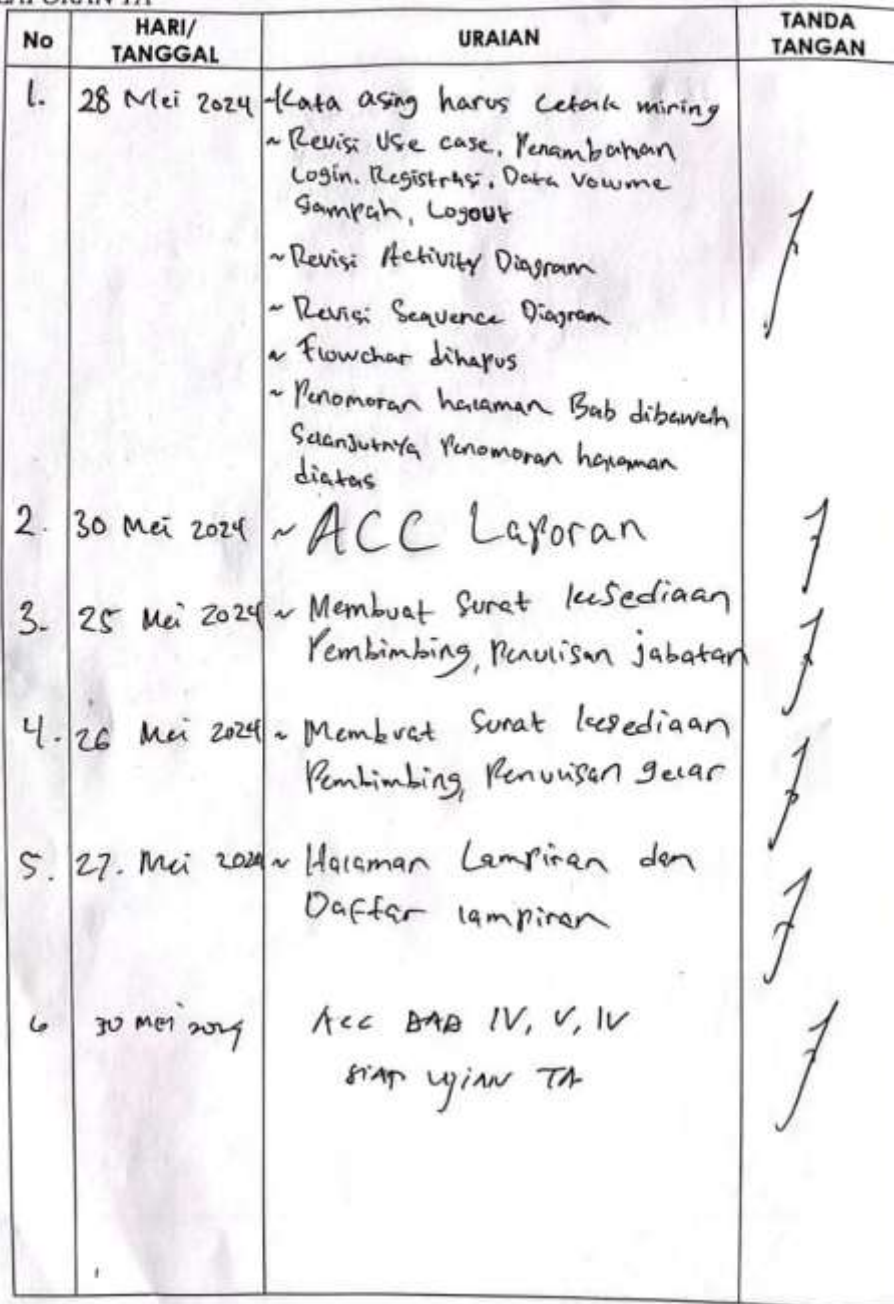 LAPORAN TA
No HARI/ TANGGAL URAIAN TANDA TANGAN
1. 28 Mei 2024 ~Kata asing harus cetak miring
~ Revisi Use case, Penambahan
Login, Registrasi, Data Volume
Sampah, Logout
~ Revisi Activity Diagram
~ Revisi Sequence Diagram
~ Flowchar dihapus
~ Penomoran halaman Bab dibawah
Selanjutnya Penomoran halaman
diatas
2. 30 Mei 2024 ~ ACC Laporan
3. 25 Mei 2024 ~ Membuat Surat kesediaan
Pembimbing, Penulisan jabatan
4. 26 Mei 2024 ~ Membuat Surat kesediaan
Pembimbing, Penulisan gelar
5. 27. Mei 2024 ~ Halaman Lampiran dan
Daftar lampiran
6 30 Mei 2024 Acc BAB IV, V, IV
SIAP UJIAN TA